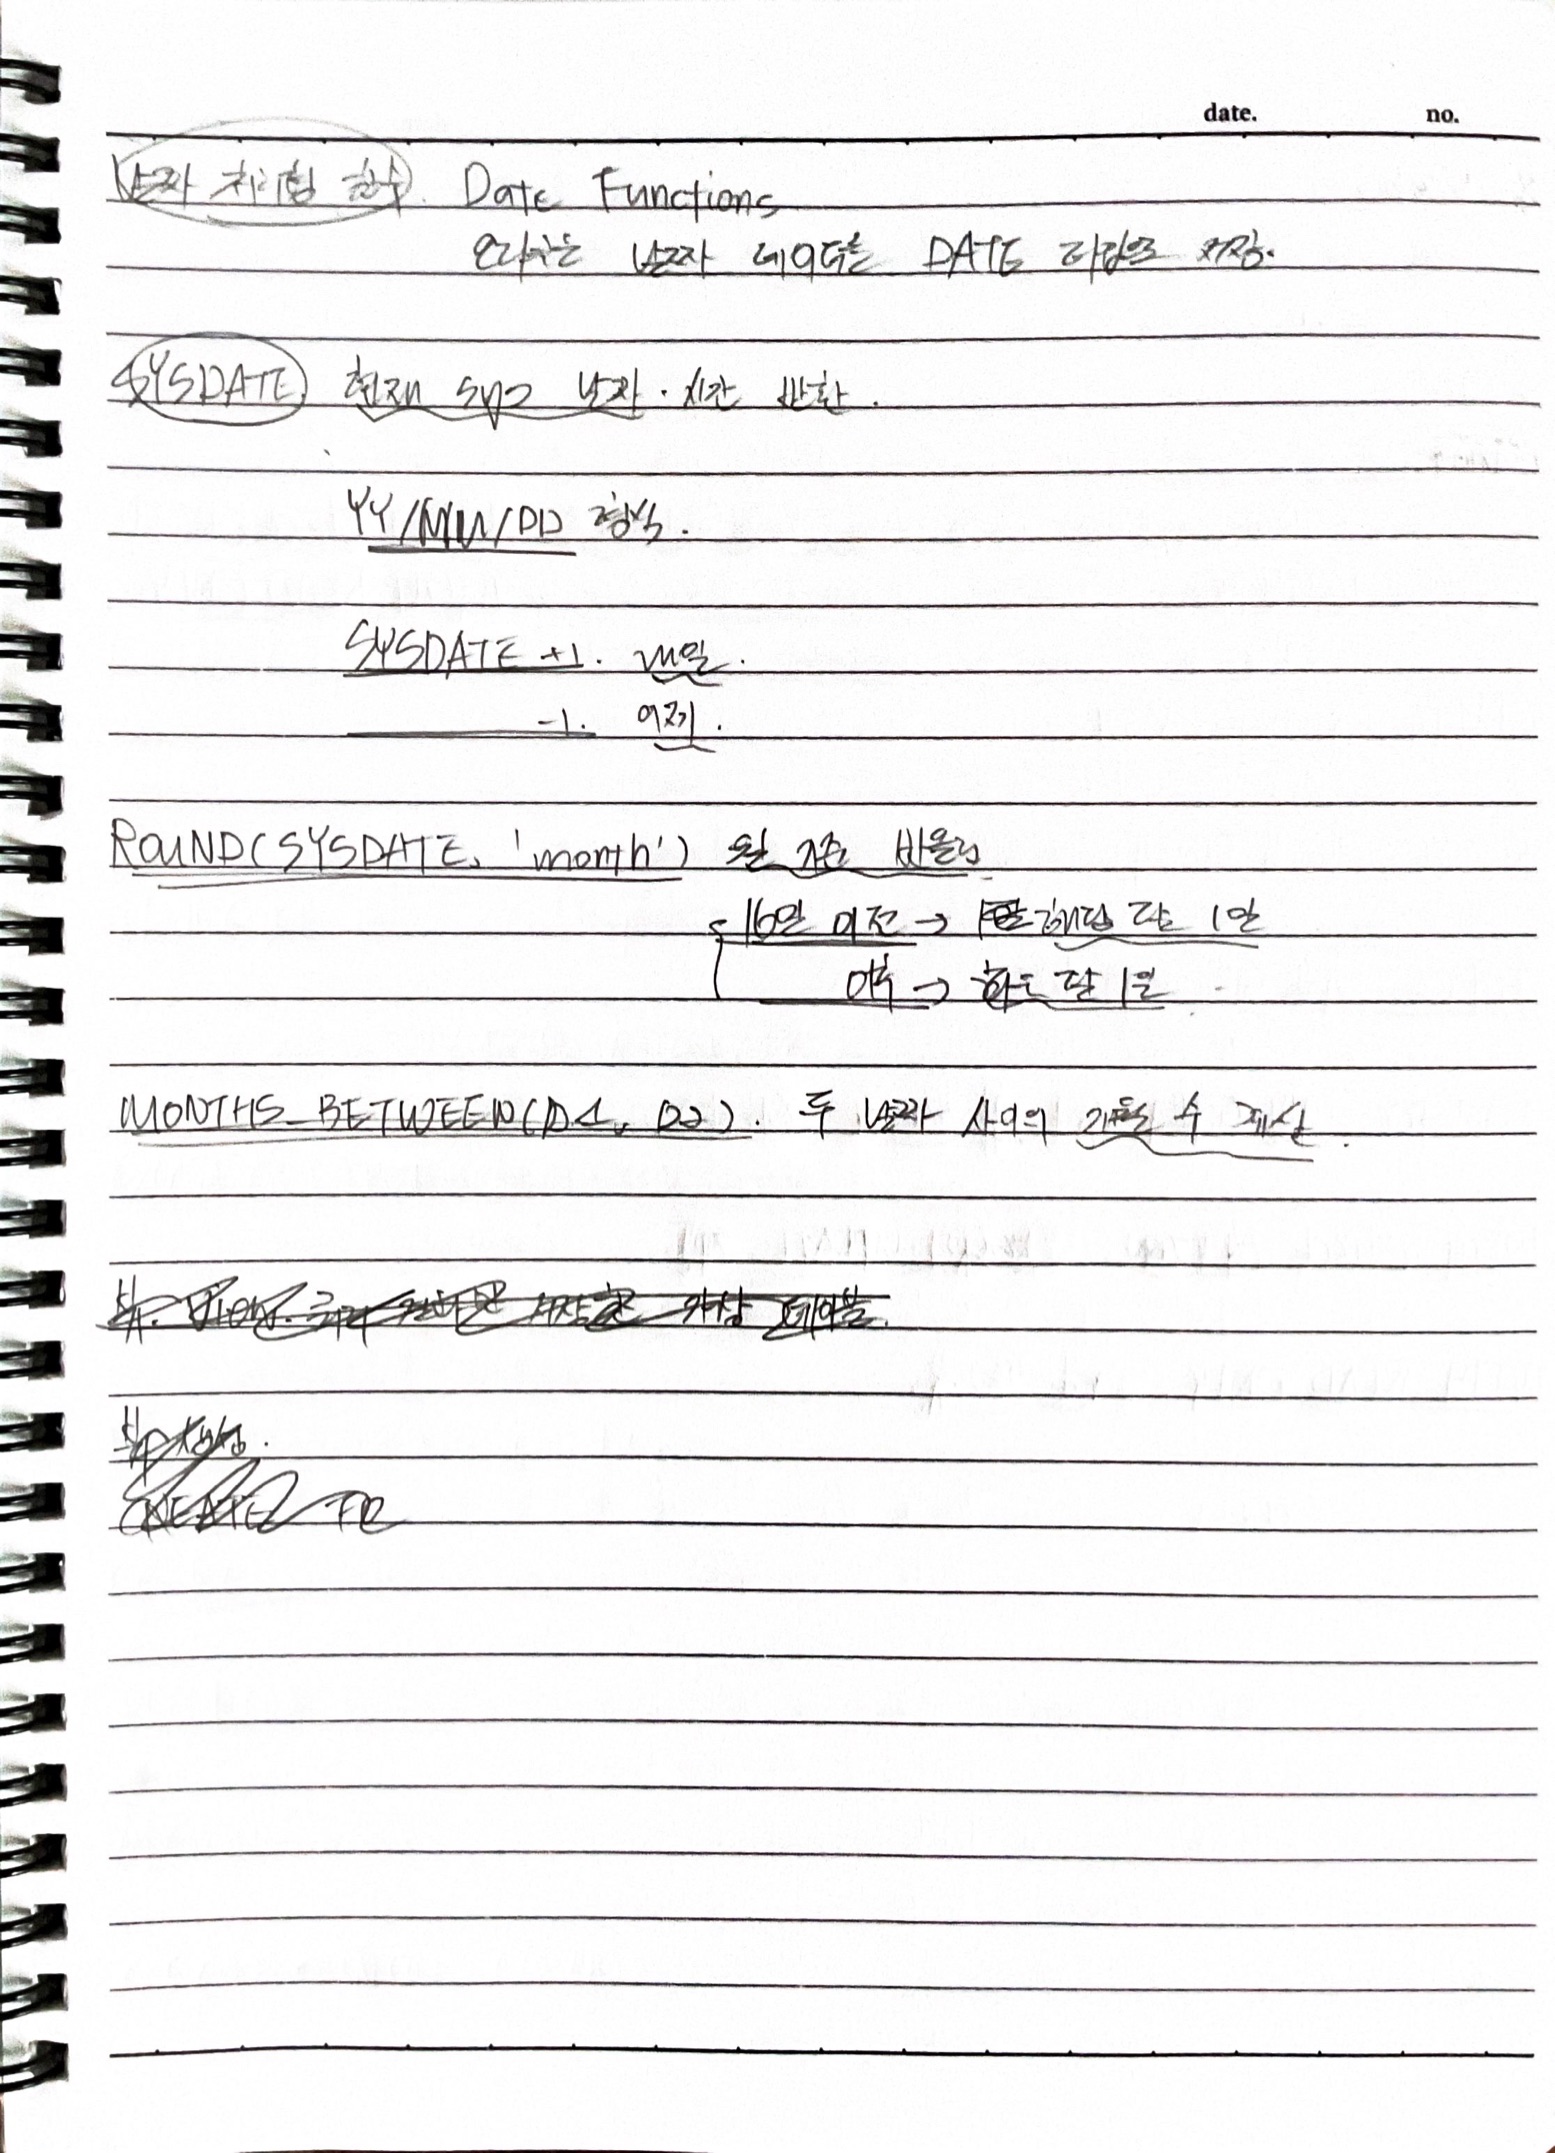 date. no.
날짜 처리함 함수. Date Functions
오라클은 날짜 데이터를 DATE 타입으로 저장.
SYSDATE 현재 시스템 날짜·시간 반환.
YY/MM/DD 형식.
SYSDATE +1. 내일.
-1. 어제.
ROUND(SYSDATE, 'month') 월 기준 반올림
16일 이전 → 해당 달 1일
이후 → 다음 달 1일
MONTHS_BETWEEN(D1, D2). 두 날짜 사이의 개월 수 계산.
뷰. View. 쿼리 저장한 가상 테이블.
뷰 생성.
CREATE